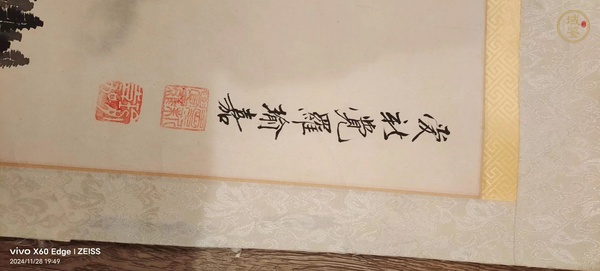 愛新覺羅瑜嘉
vivo X60 Edge | ZEISS
2024/11/28 19:49